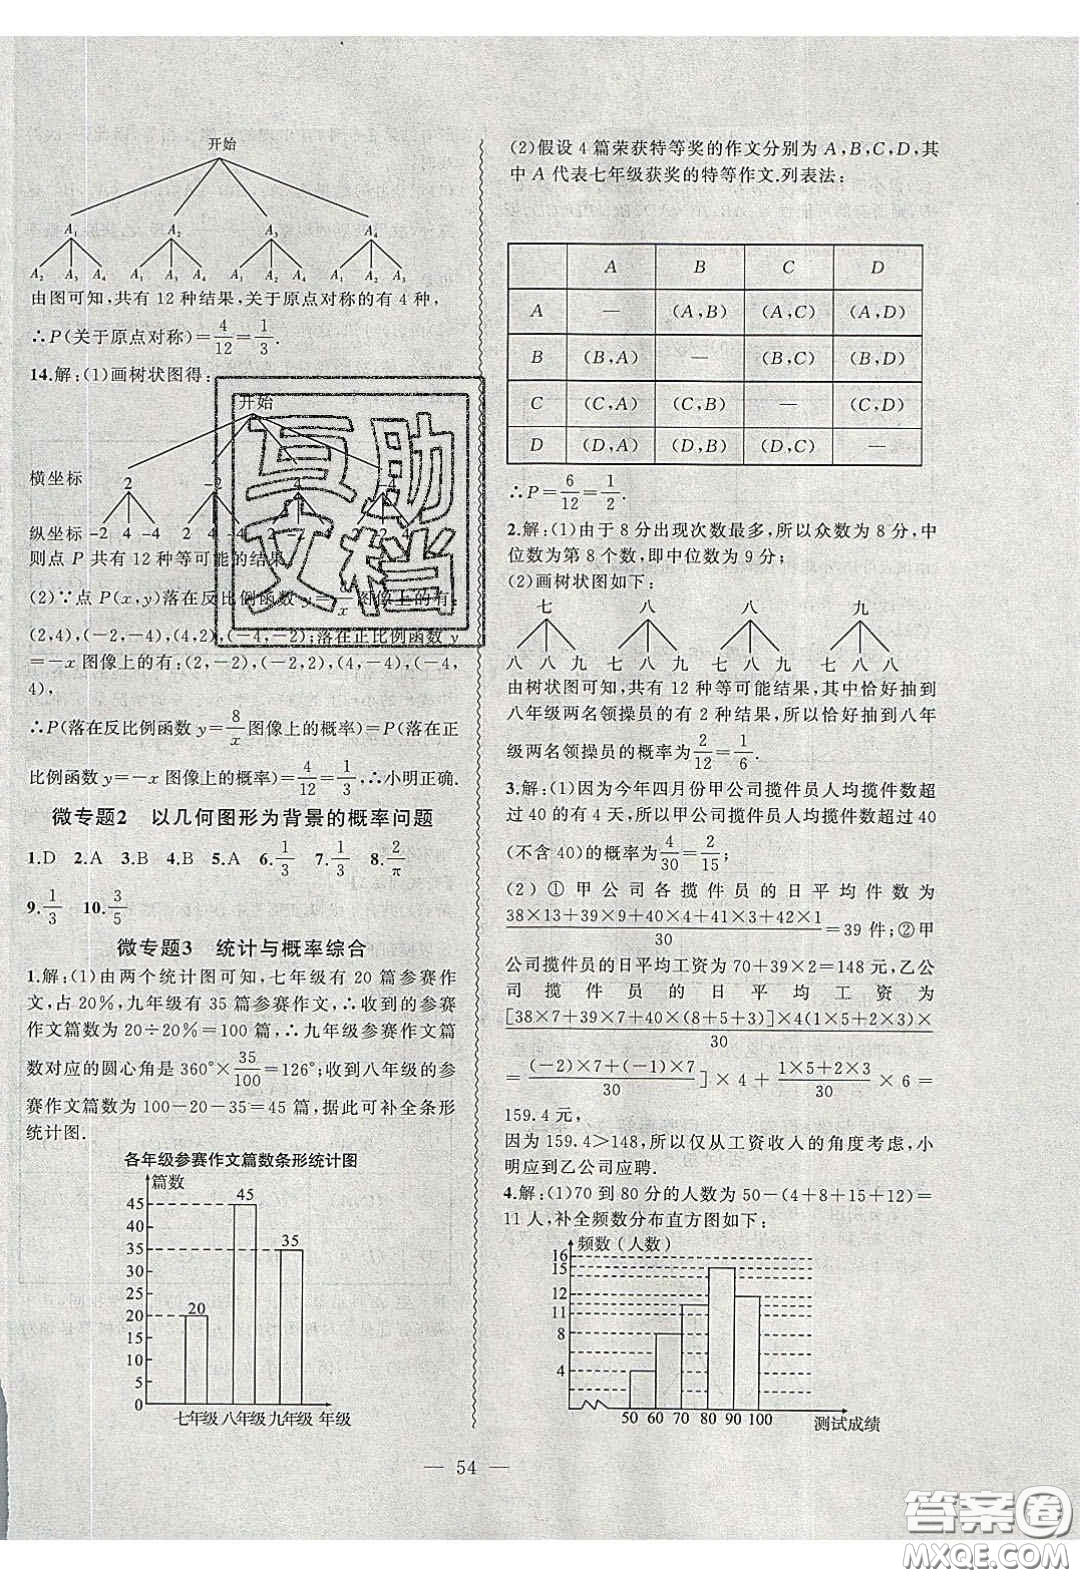 开始
A₁ A₂ A₃ A₄
A₂ A₃ A₄ A₁ A₃ A₄ A₁ A₂ A₄ A₁ A₂ A₃
由图可知,共有12种结果,关于原点对称的有4种,
∴P(关于原点对称)=4/12=1/3.
14.解:(1)画树状图得:
开始
横坐标 2 -2 4 -4
纵坐标 -2 4 -4 2 4 -4 2 -2 2 4
则点 P 共有12种等可能的结果
(2)∵点 P(x,y)落在反比例函数 y=/x图像上的有:
(2,4),(-2,-4),(4,2),(-4,-2);落在正比例函数 y
=-x 图像上的有:(2,-2),(-2,2),(4,-4),(-4,
4),
∴P(落在反比例函数 y=8/x图像上的概率)=P(落在正
比例函数 y=-x 图像上的概率)=4/12=1/3,∴小明正确.
微专题2 以几何图形为背景的概率问题
1.D 2.A 3.B 4.B 5.A 6.1/3 7.1/3 8.2/π
9.1/3 10.3/5
微专题3 统计与概率综合
1.解:(1)由两个统计图可知,七年级有20篇参赛作
文,占20%,九年级有35篇参赛作文,∴收到的参赛
作文篇数为20÷20%=100篇,∴九年级参赛作文篇
数对应的圆心角是360°×35/100=126°;收到八年级的参
赛作文篇数为100-20-35=45篇,据此可补全条形
统计图.
各年级参赛作文篇数条形统计图
篇数
45
40
35
30
25
20
15
10
5
0
20
45
35
七年级 八年级 九年级 年级
(2)假设4篇荣获特等奖的作文分别为A,B,C,D,其
中A代表七年级获奖的特等作文.列表法:
A B C D
A — (A,B) (A,C) (A,D)
B (B,A) — (B,C) (B,D)
C (C,A) (C,B) — (C,D)
D (D,A) (D,B) (D,C) —
∴P=6/12=1/2.
2.解:(1)由于8分出现次数最多,所以众数为8分,中
位数为第8个数,即中位数为9分;
(2)画树状图如下:
七 八 八 九
八 八 九 七 八 九 七 八 九 七 八 八
由树状图可知,共有12种等可能结果,其中恰好抽到
八年级两名领操员的有2种结果,所以恰好抽到八年
级两名领操员的概率为2/12=1/6.
3.解:(1)因为今年四月份甲公司揽件员人均揽件数超
过40的有4天,所以甲公司揽件员人均揽件数超过40
(不含40)的概率为4/30=2/15;
(2)①甲公司各揽件员的日平均件数为
38×13+39×9+40×4+41×3+42×1/30=39件;②甲
公司揽件员的日平均工资为70+39×2=148元,乙公
司揽件员的日平均工资为
[38×7+39×7+40×(8+5+3)]×4(1×5+2×3)×/30
=(-2)×7+(-1)×7/30]×4+1×5+2×3/30×6=
159.4元,
因为159.4>148,所以仅从工资收入的角度考虑,小
明应到乙公司应聘.
4.解:(1)70到80分的人数为50-(4+8+15+12)=
11人,补全频数分布直方图如下:
频数(人数)
16
15
12
11
8
4
50 60 70 80 90 100 测试成绩
— 54 —
互助
文档
答案圈
MXQE.COM